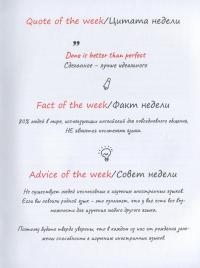 Quote of the week/Цитата недели
”
Done is better than perfect
Сделанное - лучше идеального
Fact of the week/Факт недели
80% людей в мире, использующих английский для повседневного общения,
НЕ являются носителями языка.
Advice of the week/Совет недели
Не существует людей неспособных к изучению иностранных языков.
Если вы освоили родной язык - это означает, что у вас есть все воз-
можности для изучения любого другого языка.
Поэтому будьте твердо уверены, что в каждом из нас от рождения зало-
жены способности к изучению иностранных языков.